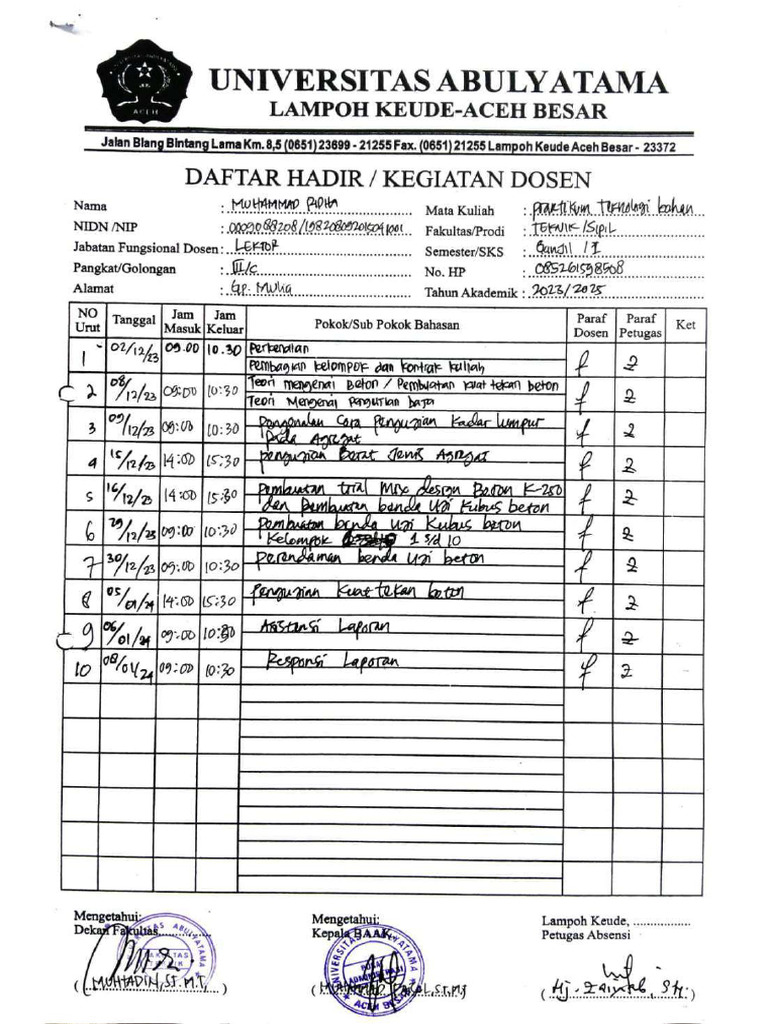 UNIVERSITAS ABULYATAMA
LAMPOH KEUDE-ACEH BESAR
ACEH
Jalan Blang Bintang Lama Km. 8,5 (0651) 23699 - 21255 Fax. (0651) 21255 Lampoh Keude Aceh Besar - 23372
DAFTAR HADIR / KEGIATAN DOSEN
Nama : MUHAMMAD RIDHA
Mata Kuliah : Praktikum Teknologi bahan
NIDN /NIP :
Fakultas/Prodi : TEKNIK/SIPIL
Jabatan Fungsional Dosen : LEKTOR
Semester/SKS : Ganjil / I
Pangkat/Golongan : III/c
No. HP : 085261598508
Alamat : Gp. Mulia
Tahun Akademik : 2023/2025
NO Urut Tanggal Jam Masuk Jam Keluar Pokok/Sub Pokok Bahasan Paraf Dosen Paraf Petugas Ket
1 02/12/23 09.00 10.30 Perkenalan
Pembagian kelompok dan kontrak kuliah
2 08/12/23 09:00 10:30 Teori mengenai Beton / Pembuatan kuat tekan beton
Teori Mengenai Pengujian baja
3 09/12/23 09:00 10:30 Pengenalan Cara Pengujian Kadar Lumpur
Pada Agregat
4 15/12/23 14:00 15:30 Pengujian Berat Jenis Agregat
5 16/12/23 14:00 15:30 Pembuatan trial Mix design Beton K-250
dan Pembuatan benda Uji Kubus beton
6 29/12/23 09:00 10:30 Pembuatan benda Uji Kubus beton
Kelompok 1 s/d 10
7 30/12/23 09:00 10:30 Perendaman benda Uji beton
8 05/01/24 14:00 15:30 Pengujian Kuat tekan beton
9 06/01/24 09:00 10:30 Asistensi Laporan
10 08/01/24 09:00 10:30 Responsi Laporan
Mengetahui:
Dekan Fakultas
Mengetahui:
Kepala BAAK
Lampoh Keude,
Petugas Absensi
UNIVERSITAS ABULYATAMA
ACEH BESAR
( MUHADIN, ST. M.T, )